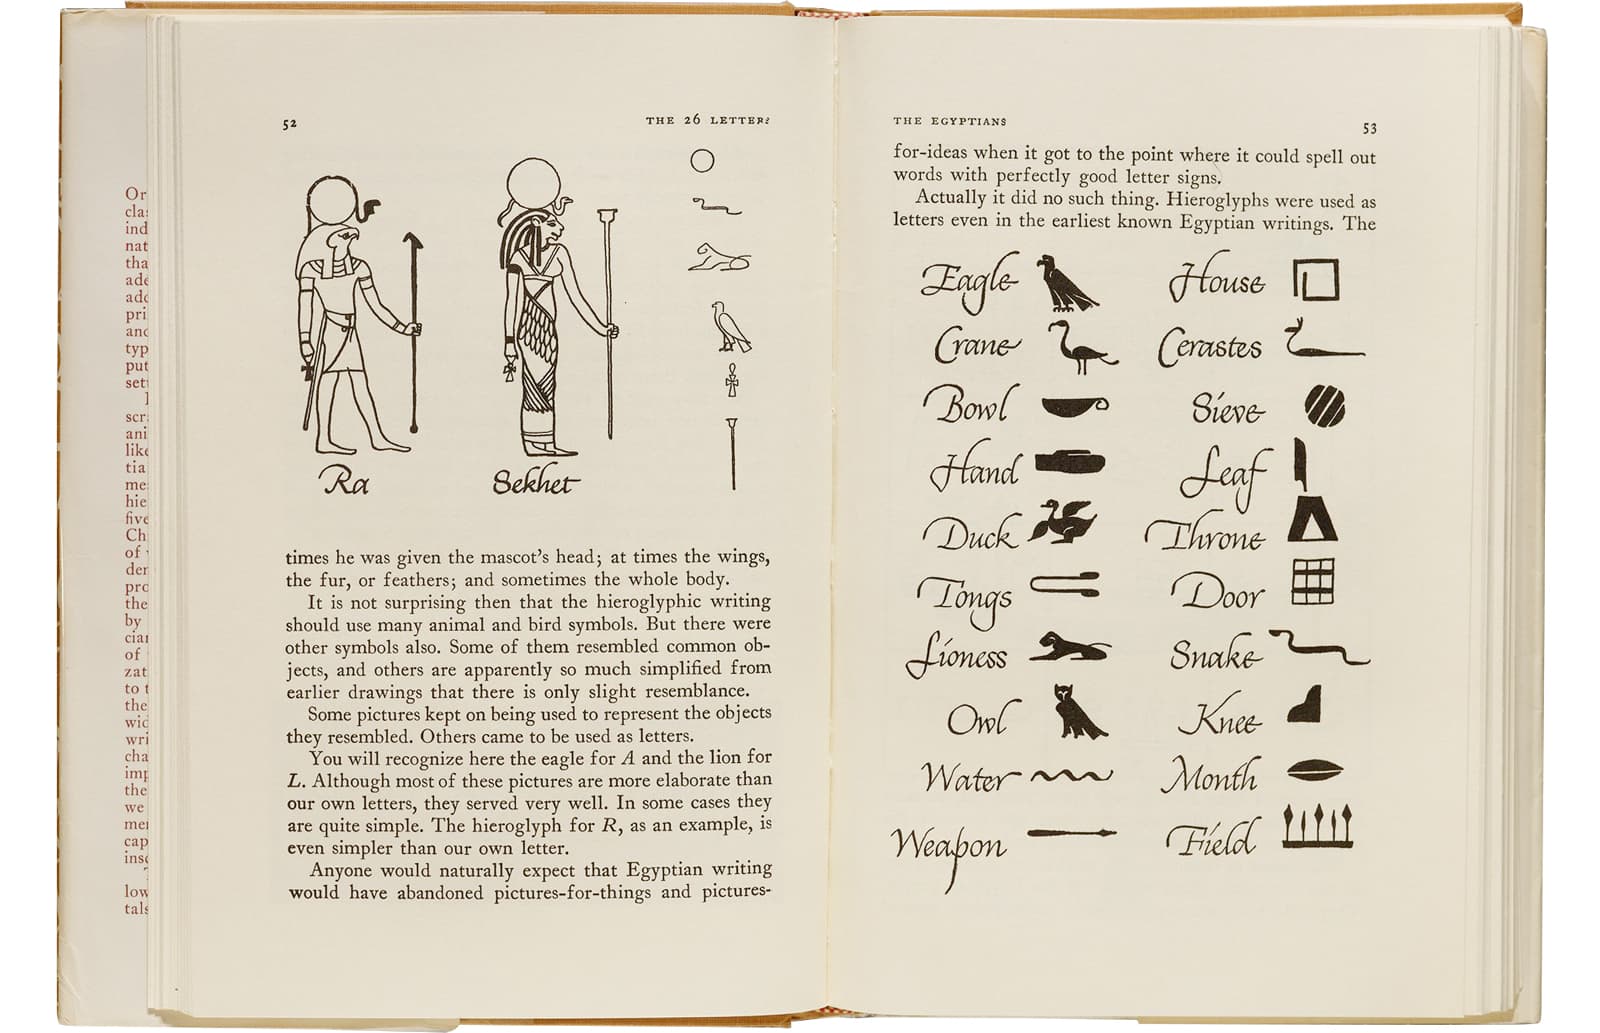 Or
cla
ind
nat
tha
ade
add
pri
and
typ
put
set
scr
ani
like
tia
me
hie
five
Ch
of
der
pro
the
by
cia
of
zat
to t
the
wid
wri
cha
imp
the
we
mer
cap
ins
low
tals
52 THE 26 LETTERS
Ra Sekhet
times he was given the mascot's head; at times the wings,
the fur, or feathers; and sometimes the whole body.
It is not surprising then that the hieroglyphic writing
should use many animal and bird symbols. But there were
other symbols also. Some of them resembled common ob-
jects, and others are apparently so much simplified from
earlier drawings that there is only slight resemblance.
Some pictures kept on being used to represent the objects
they resembled. Others came to be used as letters.
You will recognize here the eagle for A and the lion for
L. Although most of these pictures are more elaborate than
our own letters, they served very well. In some cases they
are quite simple. The hieroglyph for R, as an example, is
even simpler than our own letter.
Anyone would naturally expect that Egyptian writing
would have abandoned pictures-for-things and pictures-
THE EGYPTIANS 53
for-ideas when it got to the point where it could spell out
words with perfectly good letter signs.
Actually it did no such thing. Hieroglyphs were used as
letters even in the earliest known Egyptian writings. The
Eagle House
Crane Cerastes
Bowl Sieve
Hand Leaf
Duck Throne
Tongs Door
Lioness Snake
Owl Knee
Water Mouth
Weapon Field